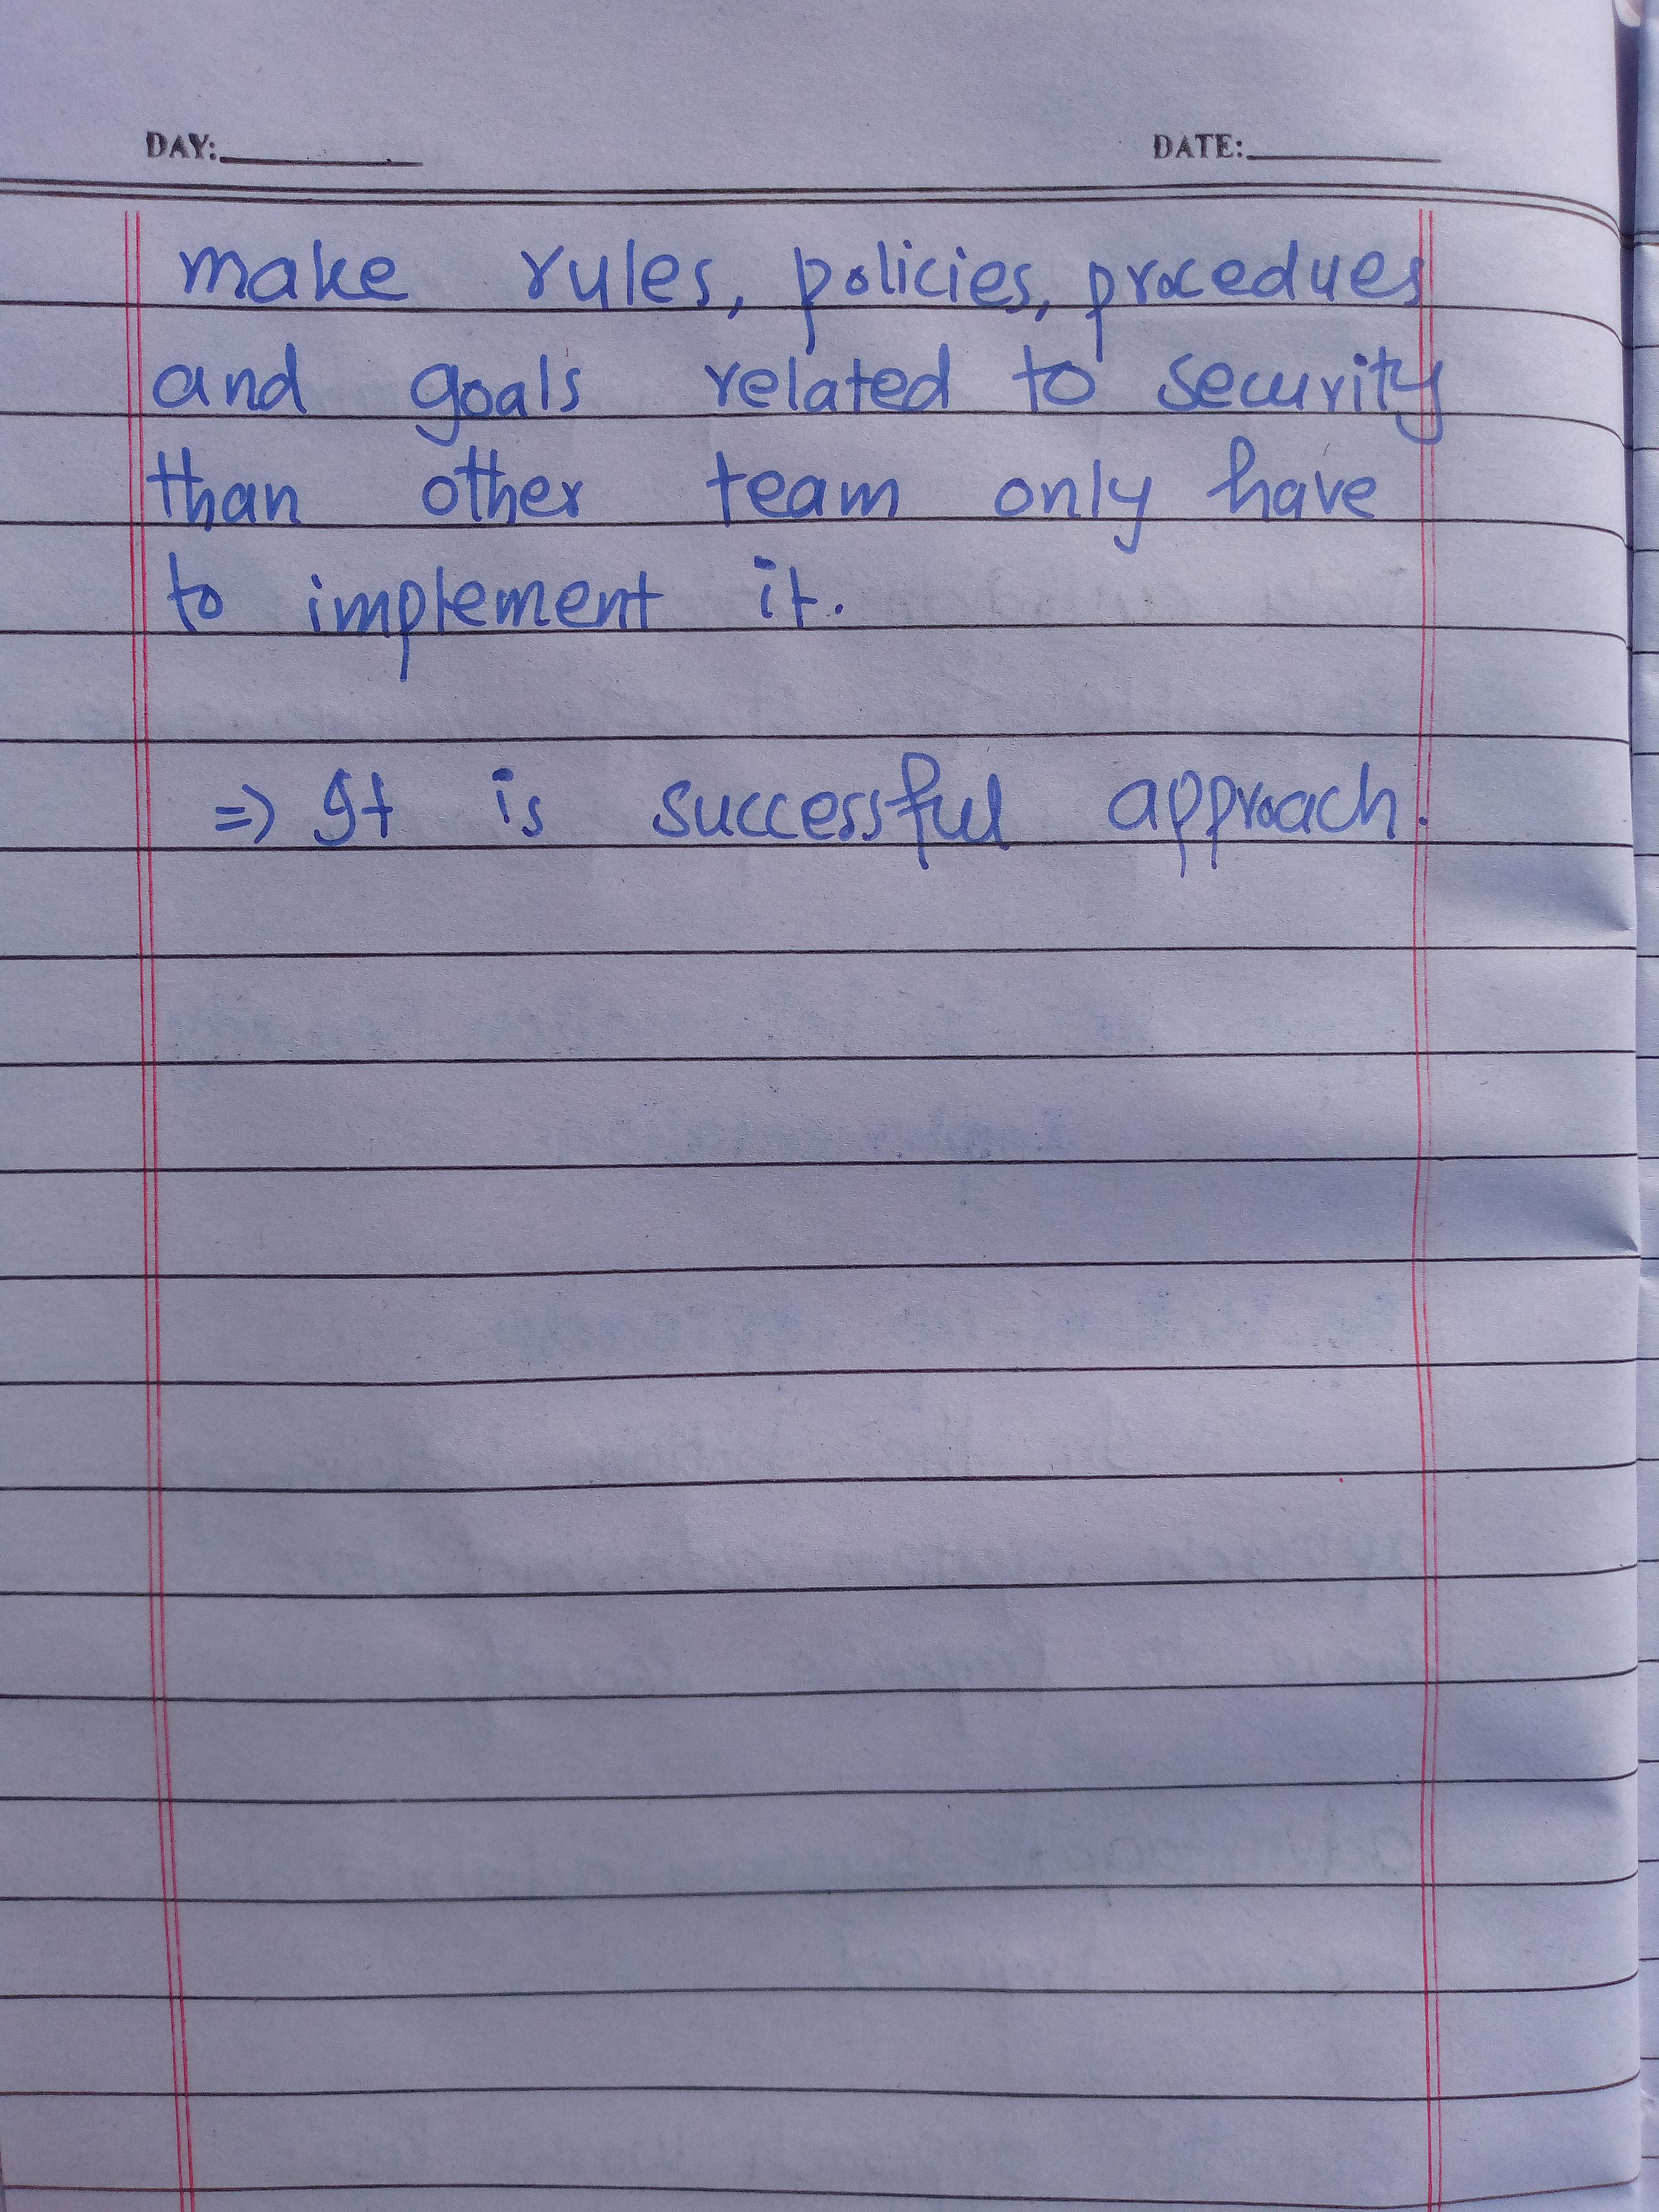 DAY: DATE:
make rules, policies, procedues
and goals related to security
than other team only have
to implement it.
=> It is successful approach.